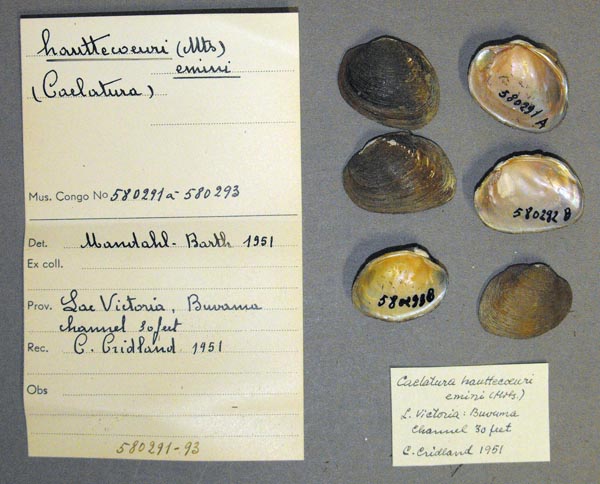 hauttecoeuri (Mts)
emini
(Caelatura)
Mus. Congo No 580291 à 580293
Det. Mandahl-Barth 1951
Ex coll.
Prov. Lac Victoria, Buvama
channel 30 feet
Rec. C. Cridland 1951
Obs
580291-93
580291 A
580292 B
580293 B
Caelatura hauttecoeuri
emini (Mts.)
L. Victoria: Buvuma
Channel 30 feet
C. Cridland 1951